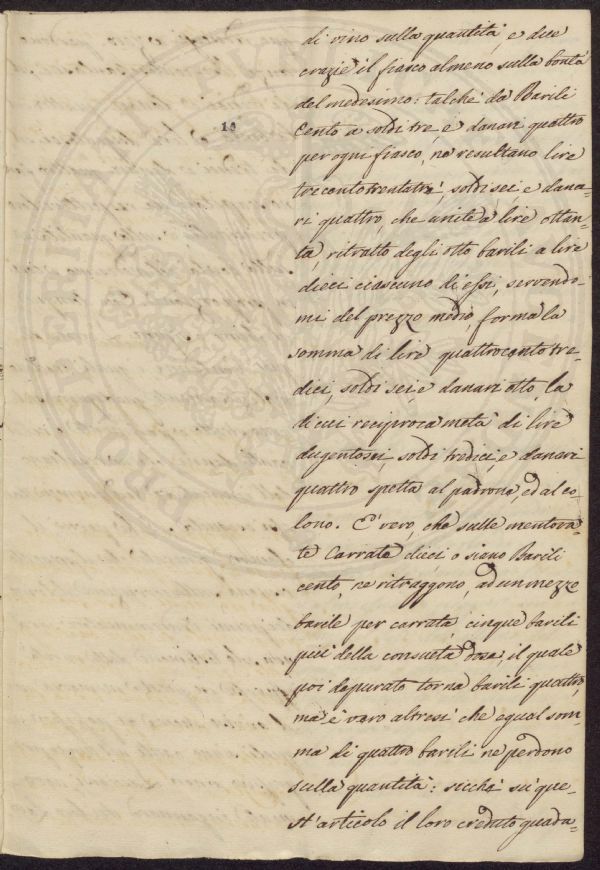 10
di vino sulla quantità, e due
crazie il fiasco almeno sulla bontà
del medesimo: talchè da Barili
Cento a soldi tre, e danari quattro
per ogni fiasco, ne resultano lire
trecentotrentatrè, soldi sei e dana-
ri quattro, che unite a lire ottan-
ta, ritratto degli otto barili a lire
dieci ciascuno di essi, servendo-
mi del prezzo medio, forma la
somma di lire quattrocentotre-
dici, soldi sei, e danari otto, la
di cui reciproca metà di lire
dugentosei, soldi tredici, e danari
quattro spetta al padrone, ed al co-
lono. E' vero, che sulle mentova-
te Carrate dieci, o siano Barili
cento, ne ritraggono, ad un mezzo
barile per carrata, cinque barili
più della consueta dose, il quale
poi depurato torna barili quattro,
ma è vero altresì che egual som-
ma di quattro barili ne perdono
sulla quantità: sicchè su que-
st'articolo il loro creduto guada-
PROSPERITATI